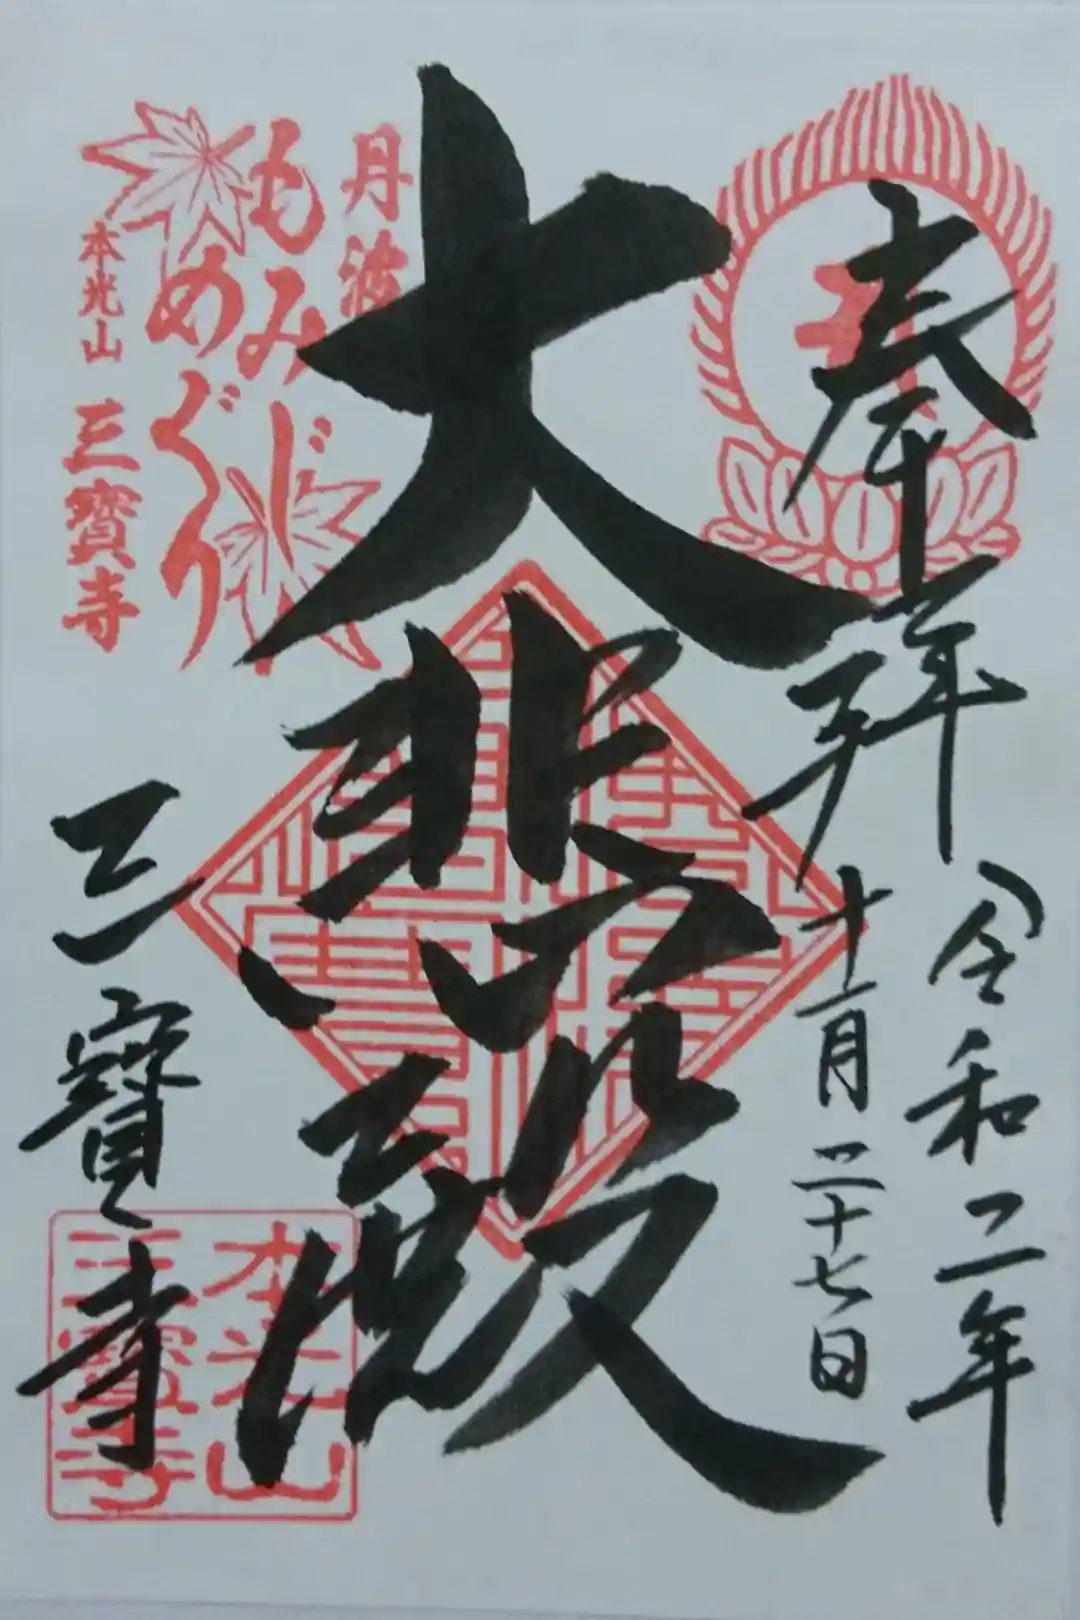 奉拝
令和二年
十一月二十七日
大悲殿
三寳寺
丹波
もみじ
めぐり
本光山
三寳寺
本光山
三寳寺